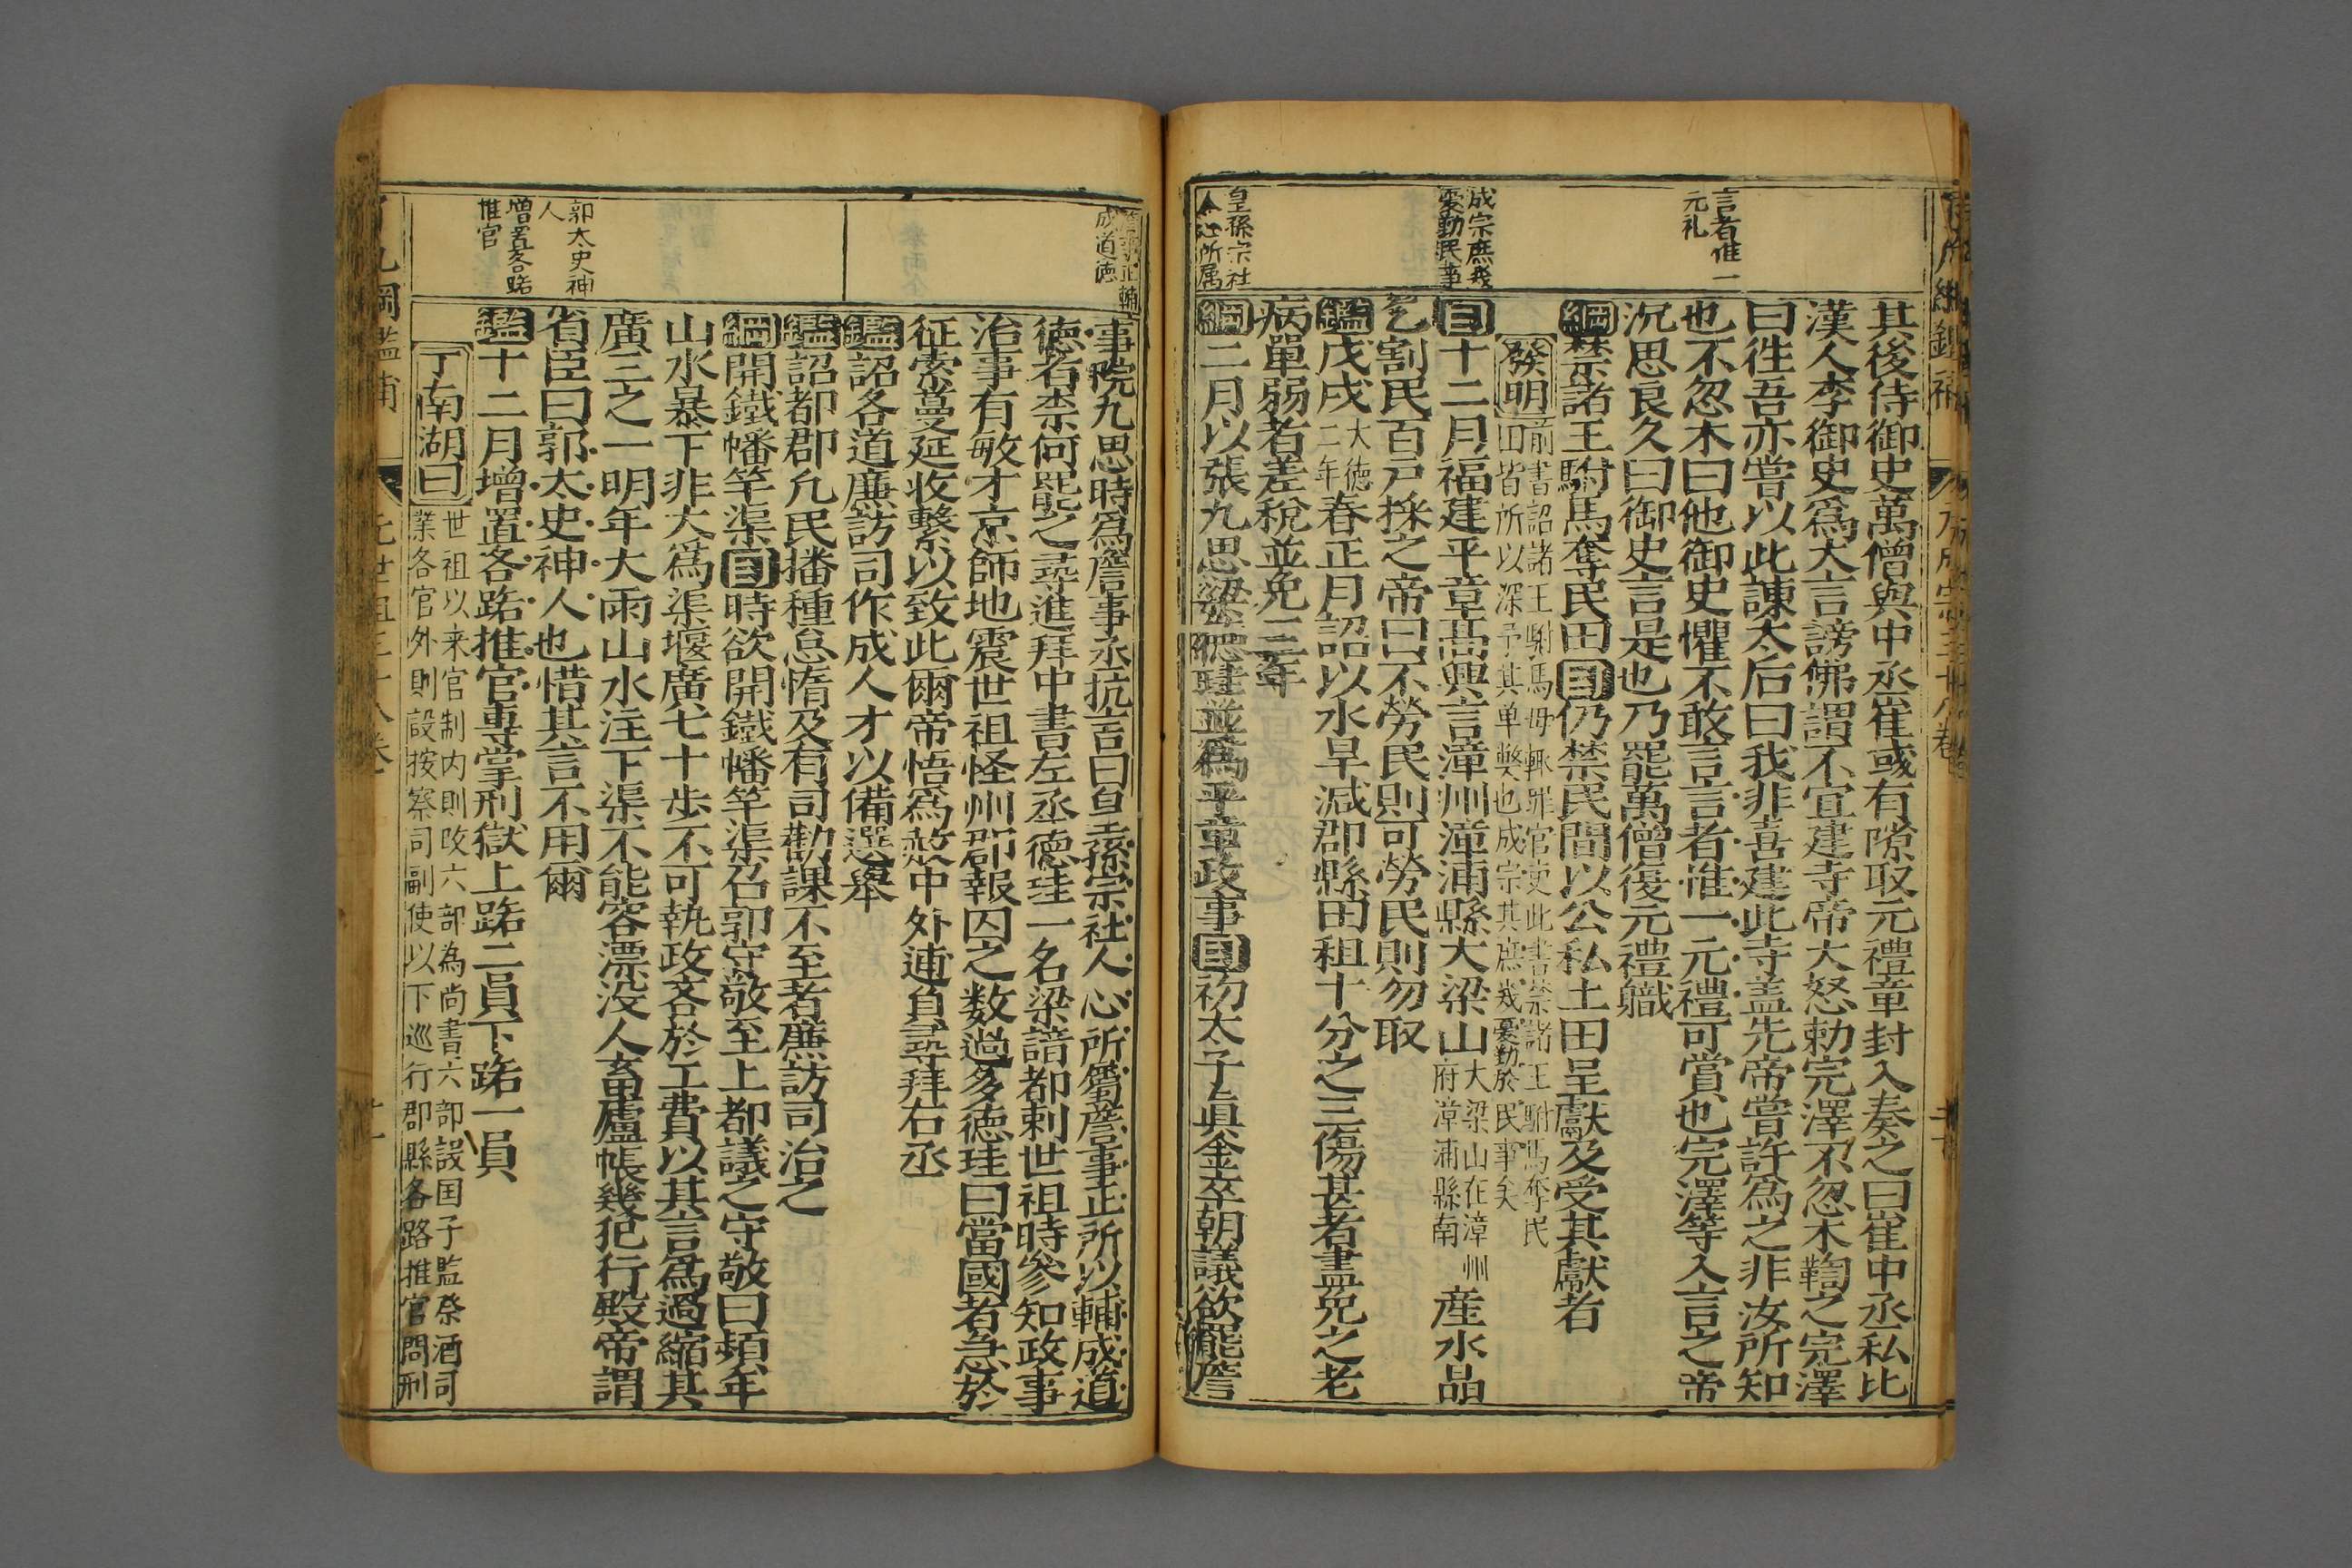 言者惟一
元礼
成宗庶幾
憂勤民事
皇孫宗社
人心所属
其後侍御史萬僧與中丞崔彧有隙取元禮章封入奏之曰崔中丞私比
漢人李御史爲大言謗佛謂不宜建寺帝大怒勅完澤不忽木鞫之完澤
曰徃吾亦嘗以此諫太后曰我非喜建此寺盖先帝嘗許爲之非汝所知
也不忽木曰他御史懼不敢言言者惟一元禮可賞也完澤等入言之帝
沉思良久曰御史言是也乃罷萬僧復元禮職
綱禁諸王駙馬奪民田目仍禁民間以公私土田呈獻及受其獻者
發明前書詔諸王駙馬毋輒罪官吏此書禁諸王駙馬奪民
田皆所以深予其革弊也成宗其庶幾憂勤於民事矣
目十二月福建平章髙興言漳州漳浦縣大梁山大梁山在漳州府漳浦縣南産水品
乞割民百戸採之帝曰不勞民則可勞民則勿取
鑑戊戌大徳二年春正月詔以水旱减郡縣田租十分之三傷甚者盡免之老
病單弱者差稅並免三年
綱二月以張九思梁德珪並爲平章政事目初太子真金卒朝議欲罷詹
詹事正輔
成道德
郭太史神
人
增置各路
推官
事院九思時爲詹事丞抗言曰皇孫宗社人心所屬詹事正所以輔成道
德者柰何罷之尋進拜中書左丞德珪一名梁諳都剌世祖時參知政事
治事有敏才京師地震世祖怪州郡報囚之数過多德珪曰當國者急於
征索蔓延收繫以致此爾帝悟爲赦中外逋負尋拜右丞
鑑詔各道廉訪司作成人才以備選舉
鑑詔都郡凢民播種怠惰及有司勸課不至者廉訪司治之
綱開鐵幡竿渠目時欲開鐵幡竿渠召郭守敬至上都議之守敬曰頻年
山水暴下非大爲渠堰廣七十歩不可執政吝於工費以其言爲過縮其
廣三之一明年大雨山水注下渠不能容漂没人畜廬帳幾犯行殿帝謂
省臣曰郭太史神人也惜其言不用爾
鑑十二月增置各路推官專掌刑獄上路二員下路一員
丁南湖曰世祖以来官制内則改六部為尚書六部設国子監祭酒司
業各官外則設按察司副使以下巡行郡縣各路推官問刑